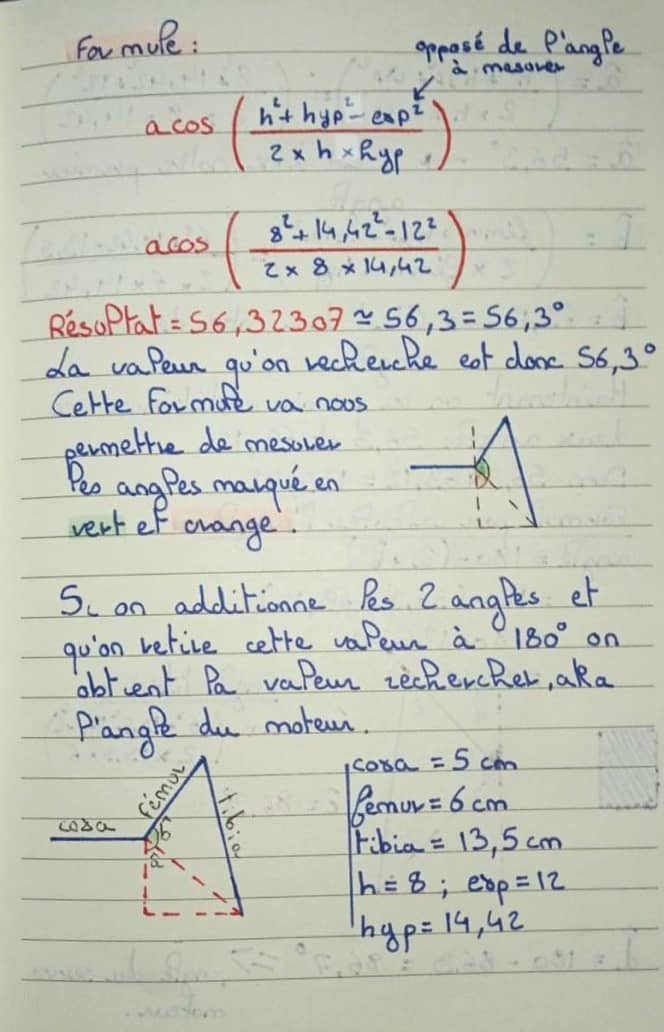 Formule :
opposé de l'angle
à mesurer
acos ( h²+ hyp² - exp² / 2 x h x hyp )
acos ( 8²+14,42²-12² / 2 x 8 x 14,42 )
Résultat = 56,32307 ≃ 56,3 = 56,3°
La valeur qu'on recherche est donc 56,3°
Cette formule va nous
permettre de mesurer
les angles marqué en
vert et orange.
Si on additionne les 2 angles et
qu'on retire cette valeur à 180° on
obtient la valeur rechercher, aka
l'angle du moteur.
coxa
fémur
tibia
b̂
â
coxa = 5 cm
femur = 6 cm
tibia = 13,5 cm
h = 8 ; exp = 12
hyp = 14,42